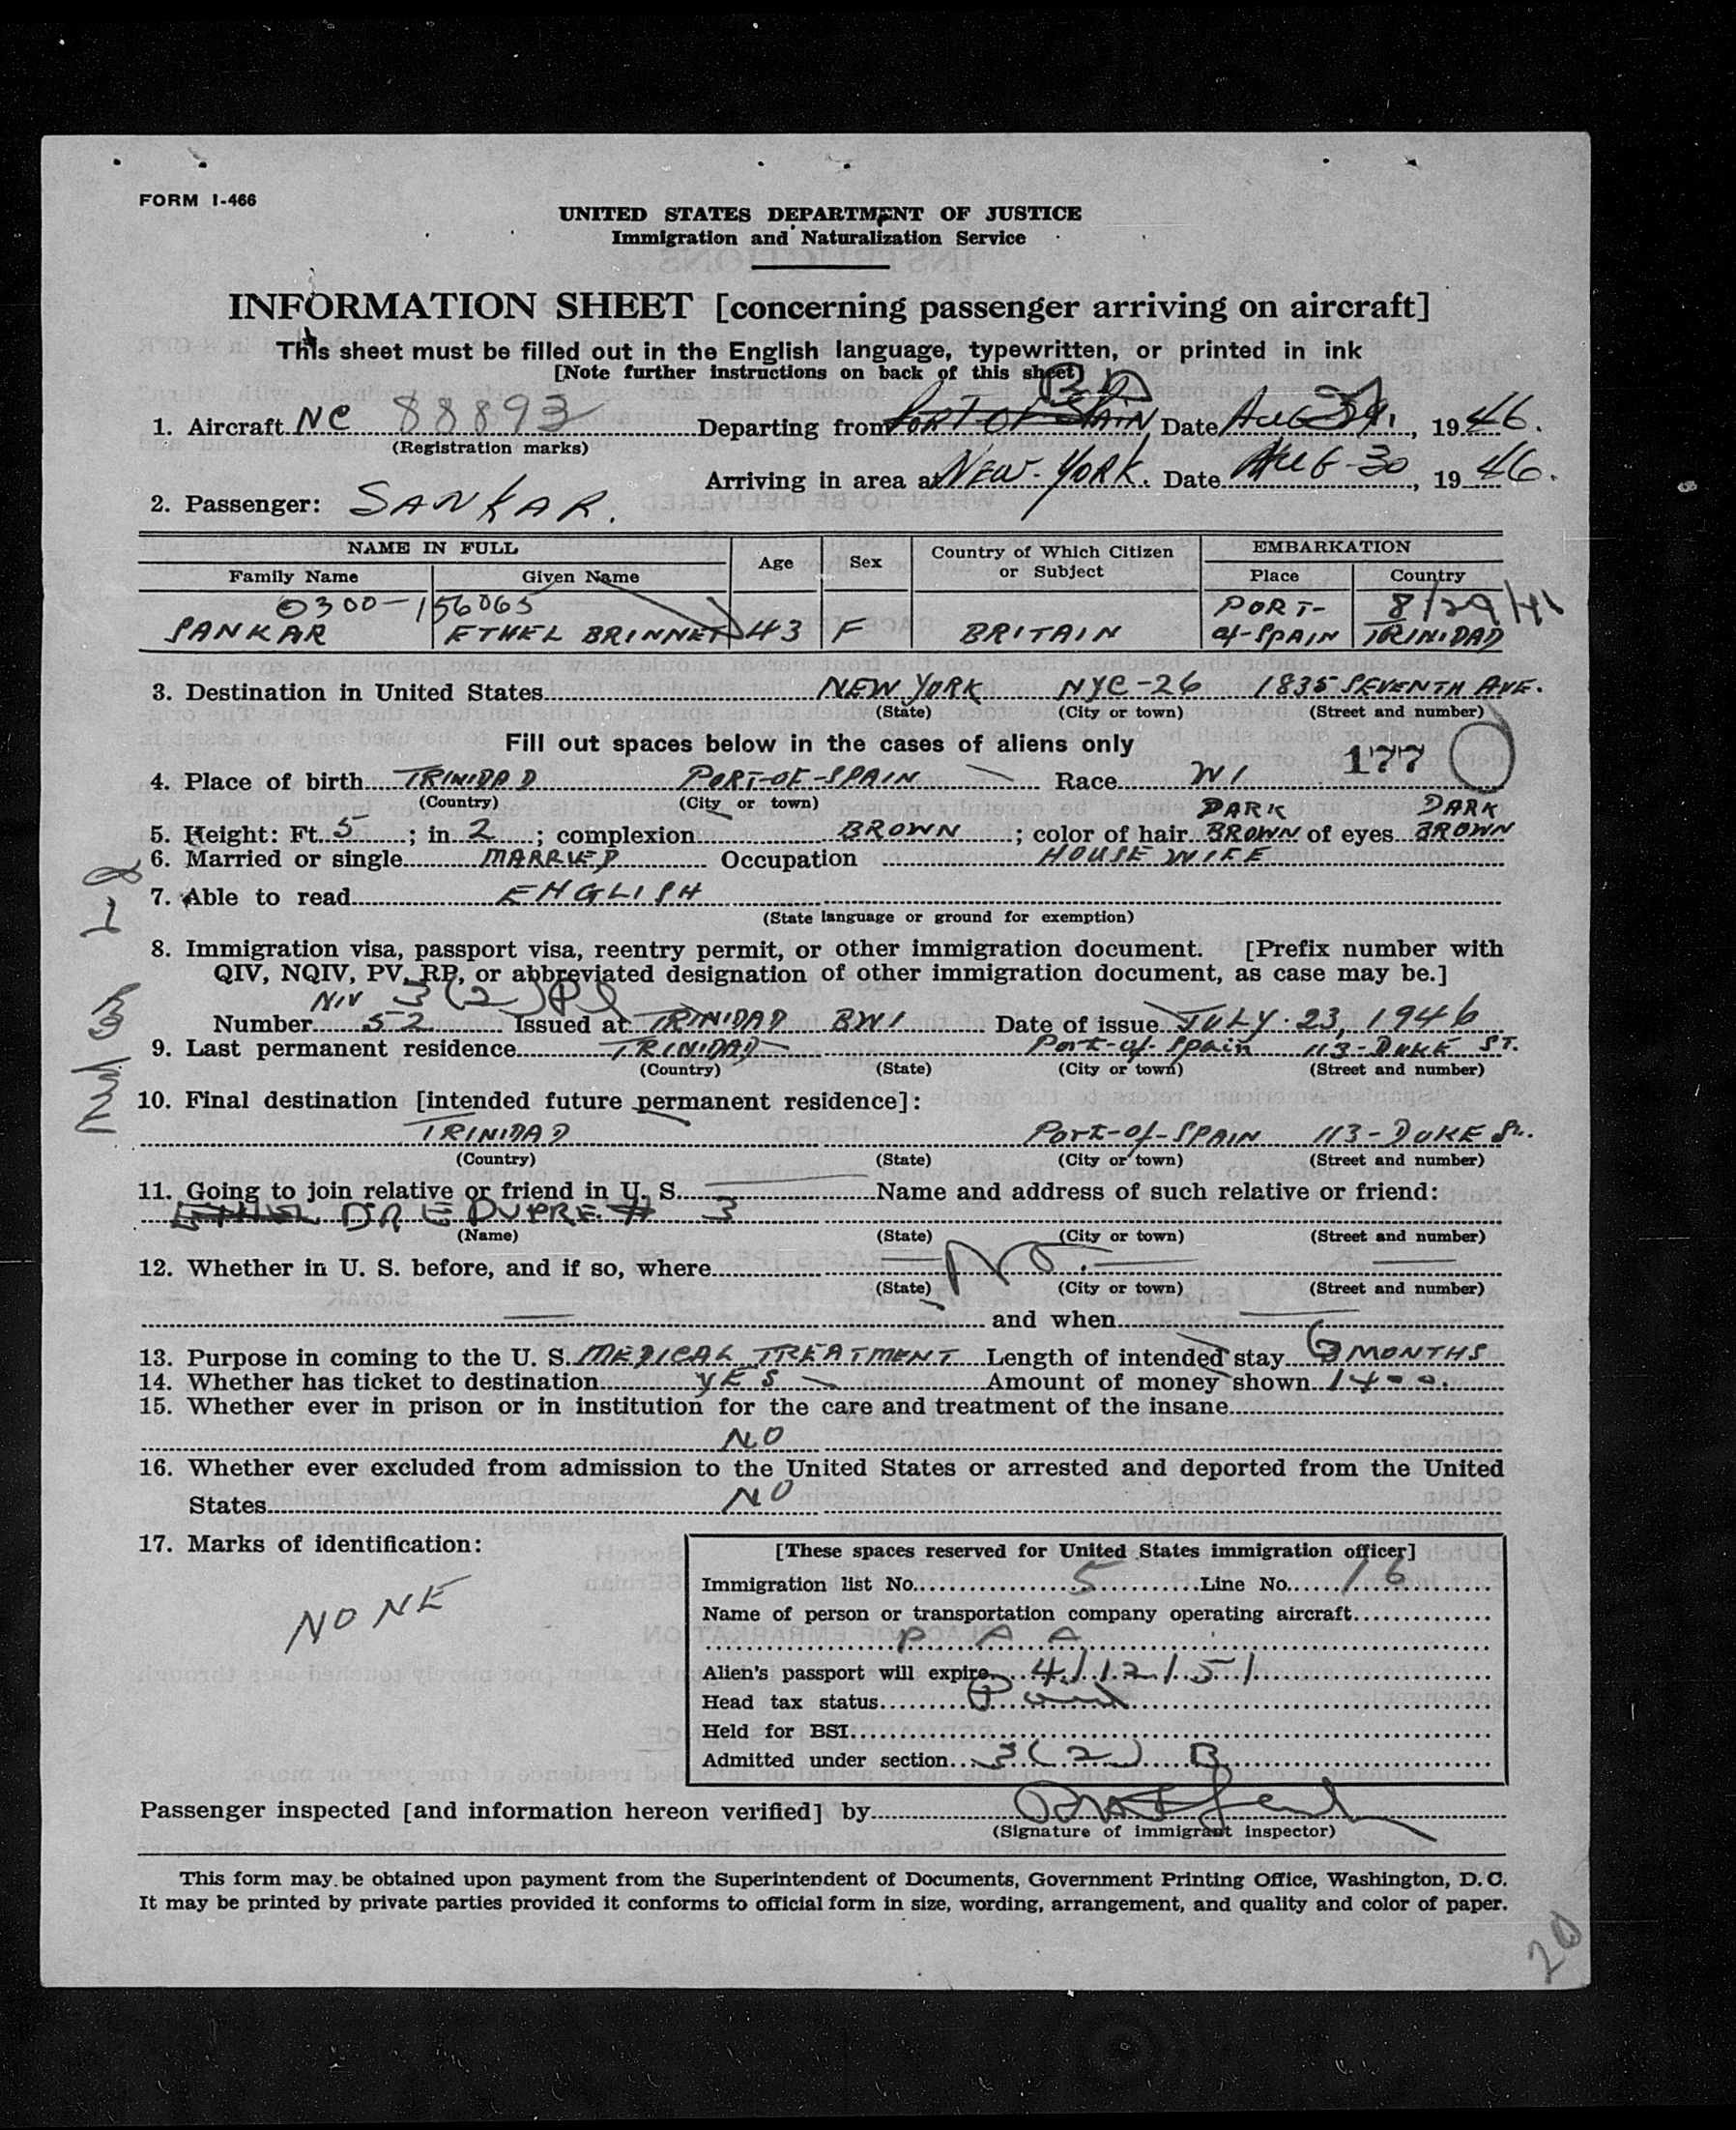 FORM I-466
UNITED STATES DEPARTMENT OF JUSTICE
Immigration and Naturalization Service
INFORMATION SHEET [concerning passenger arriving on aircraft]
This sheet must be filled out in the English language, typewritten, or printed in ink
[Note further instructions on back of this sheet]
1. Aircraft NC 88893 Departing from PORT OF SPAIN Date AUG 29, 1946.
(Registration marks)
Arriving in area at NEW-YORK. Date AUG-30, 1946.
2. Passenger: SANKAR.
NAME IN FULL Age Sex Country of Which Citizen or Subject EMBARKATION
Family Name Given Name Place Country
0300-156065 PORT- 8/29/46
SANKAR ETHEL BRINNET 43 F BRITAIN of-SPAIN TRINIDAD
3. Destination in United States NEW YORK NYC-26 1835 SEVENTH AVE.
(State) (City or town) (Street and number)
Fill out spaces below in the cases of aliens only
177
4. Place of birth TRINIDAD PORT-OF-SPAIN Race WI
(Country) (City or town)
DARK DARK
5. Height: Ft. 5; in 2; complexion BROWN; color of hair BROWN of eyes BROWN
6. Married or single MARRIED Occupation HOUSE WIFE
7. Able to read ENGLISH
(State language or ground for exemption)
8. Immigration visa, passport visa, reentry permit, or other immigration document. [Prefix number with
QIV, NQIV, PV, RP, or abbreviated designation of other immigration document, as case may be.]
NIV 3(2)
Number 52 Issued at TRINIDAD BWI Date of issue JULY. 23, 1946
9. Last permanent residence TRINIDAD Port-of-Spain 113-DUKE ST.
(Country) (State) (City or town) (Street and number)
10. Final destination [intended future permanent residence]:
TRINIDAD Port-of-SPAIN 113-DUKE St.
(Country) (State) (City or town) (Street and number)
11. Going to join relative or friend in U. S. Name and address of such relative or friend:
DR E DUPRE # 3
(Name) (State) (City or town) (Street and number)
12. Whether in U. S. before, and if so, where No.
(State) (City or town) (Street and number)
and when
13. Purpose in coming to the U. S. MEDICAL TREATMENT Length of intended stay MONTHS
14. Whether has ticket to destination YES Amount of money shown 1400.
15. Whether ever in prison or in institution for the care and treatment of the insane
NO
16. Whether ever excluded from admission to the United States or arrested and deported from the United
States NO
17. Marks of identification:
NONE
[These spaces reserved for United States immigration officer]
Immigration list No. 5 Line No. 16
Name of person or transportation company operating aircraft
P A A
Alien's passport will expire 4/12/51
Head tax status Paid
Held for BSI
Admitted under section 3(2) B
Passenger inspected [and information hereon verified] by
(Signature of immigrant inspector)
This form may be obtained upon payment from the Superintendent of Documents, Government Printing Office, Washington, D. C.
It may be printed by private parties provided it conforms to official form in size, wording, arrangement, and quality and color of paper.
20